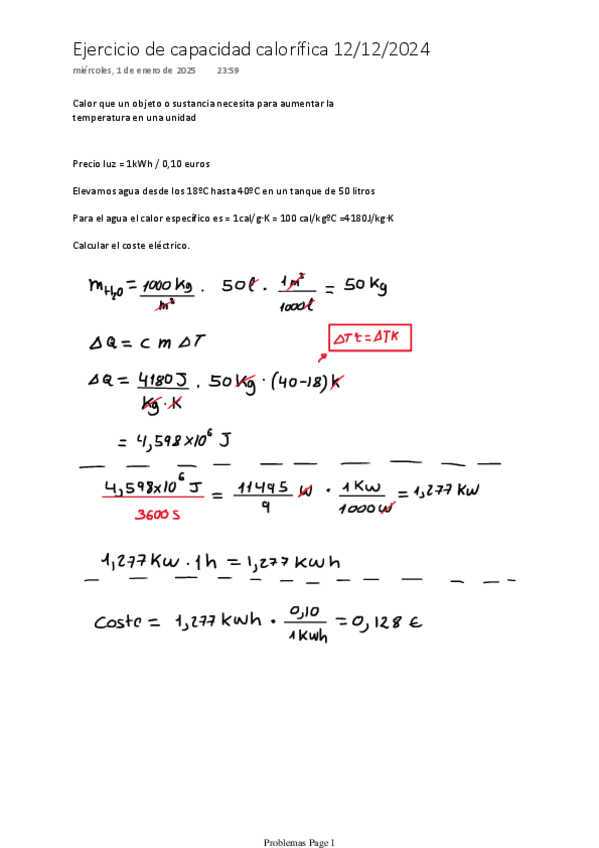 Ejercicio de capacidad calorífica 12/12/2024
miércoles, 1 de enero de 2025 23:59
Calor que un objeto o sustancia necesita para aumentar la
temperatura en una unidad
Precio luz = 1kWh / 0,10 euros
Elevamos agua desde los 18ºC hasta 40ºC en un tanque de 50 litros
Para el agua el calor específico es = 1cal/g·K = 100 cal/kgºC =4180J/kg·K
Calcular el coste eléctrico.
mH₂O = 1000 Kg / m³ . 50 l . 1 m³ / 1000 l = 50 Kg
ΔQ = c m ΔT
ΔTt = ΔTK
ΔQ = 4180 J / Kg · K . 50 Kg · (40-18) K
= 4,598×10⁶ J
4,598×10⁶ J / 3600 s = 11495 / 9 W · 1 KW / 1000 W = 1,277 KW
1,277 KW · 1h = 1,277 KWh
Coste = 1,277 KWh · 0,10 / 1 KWh = 0,128 €
Problemas Page 1